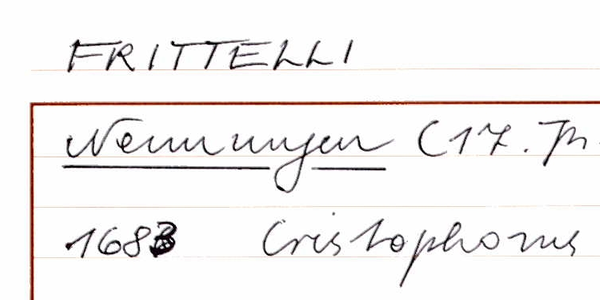 FRITTELLI
Nennungen (17. Jh.
1683 Cristophorus